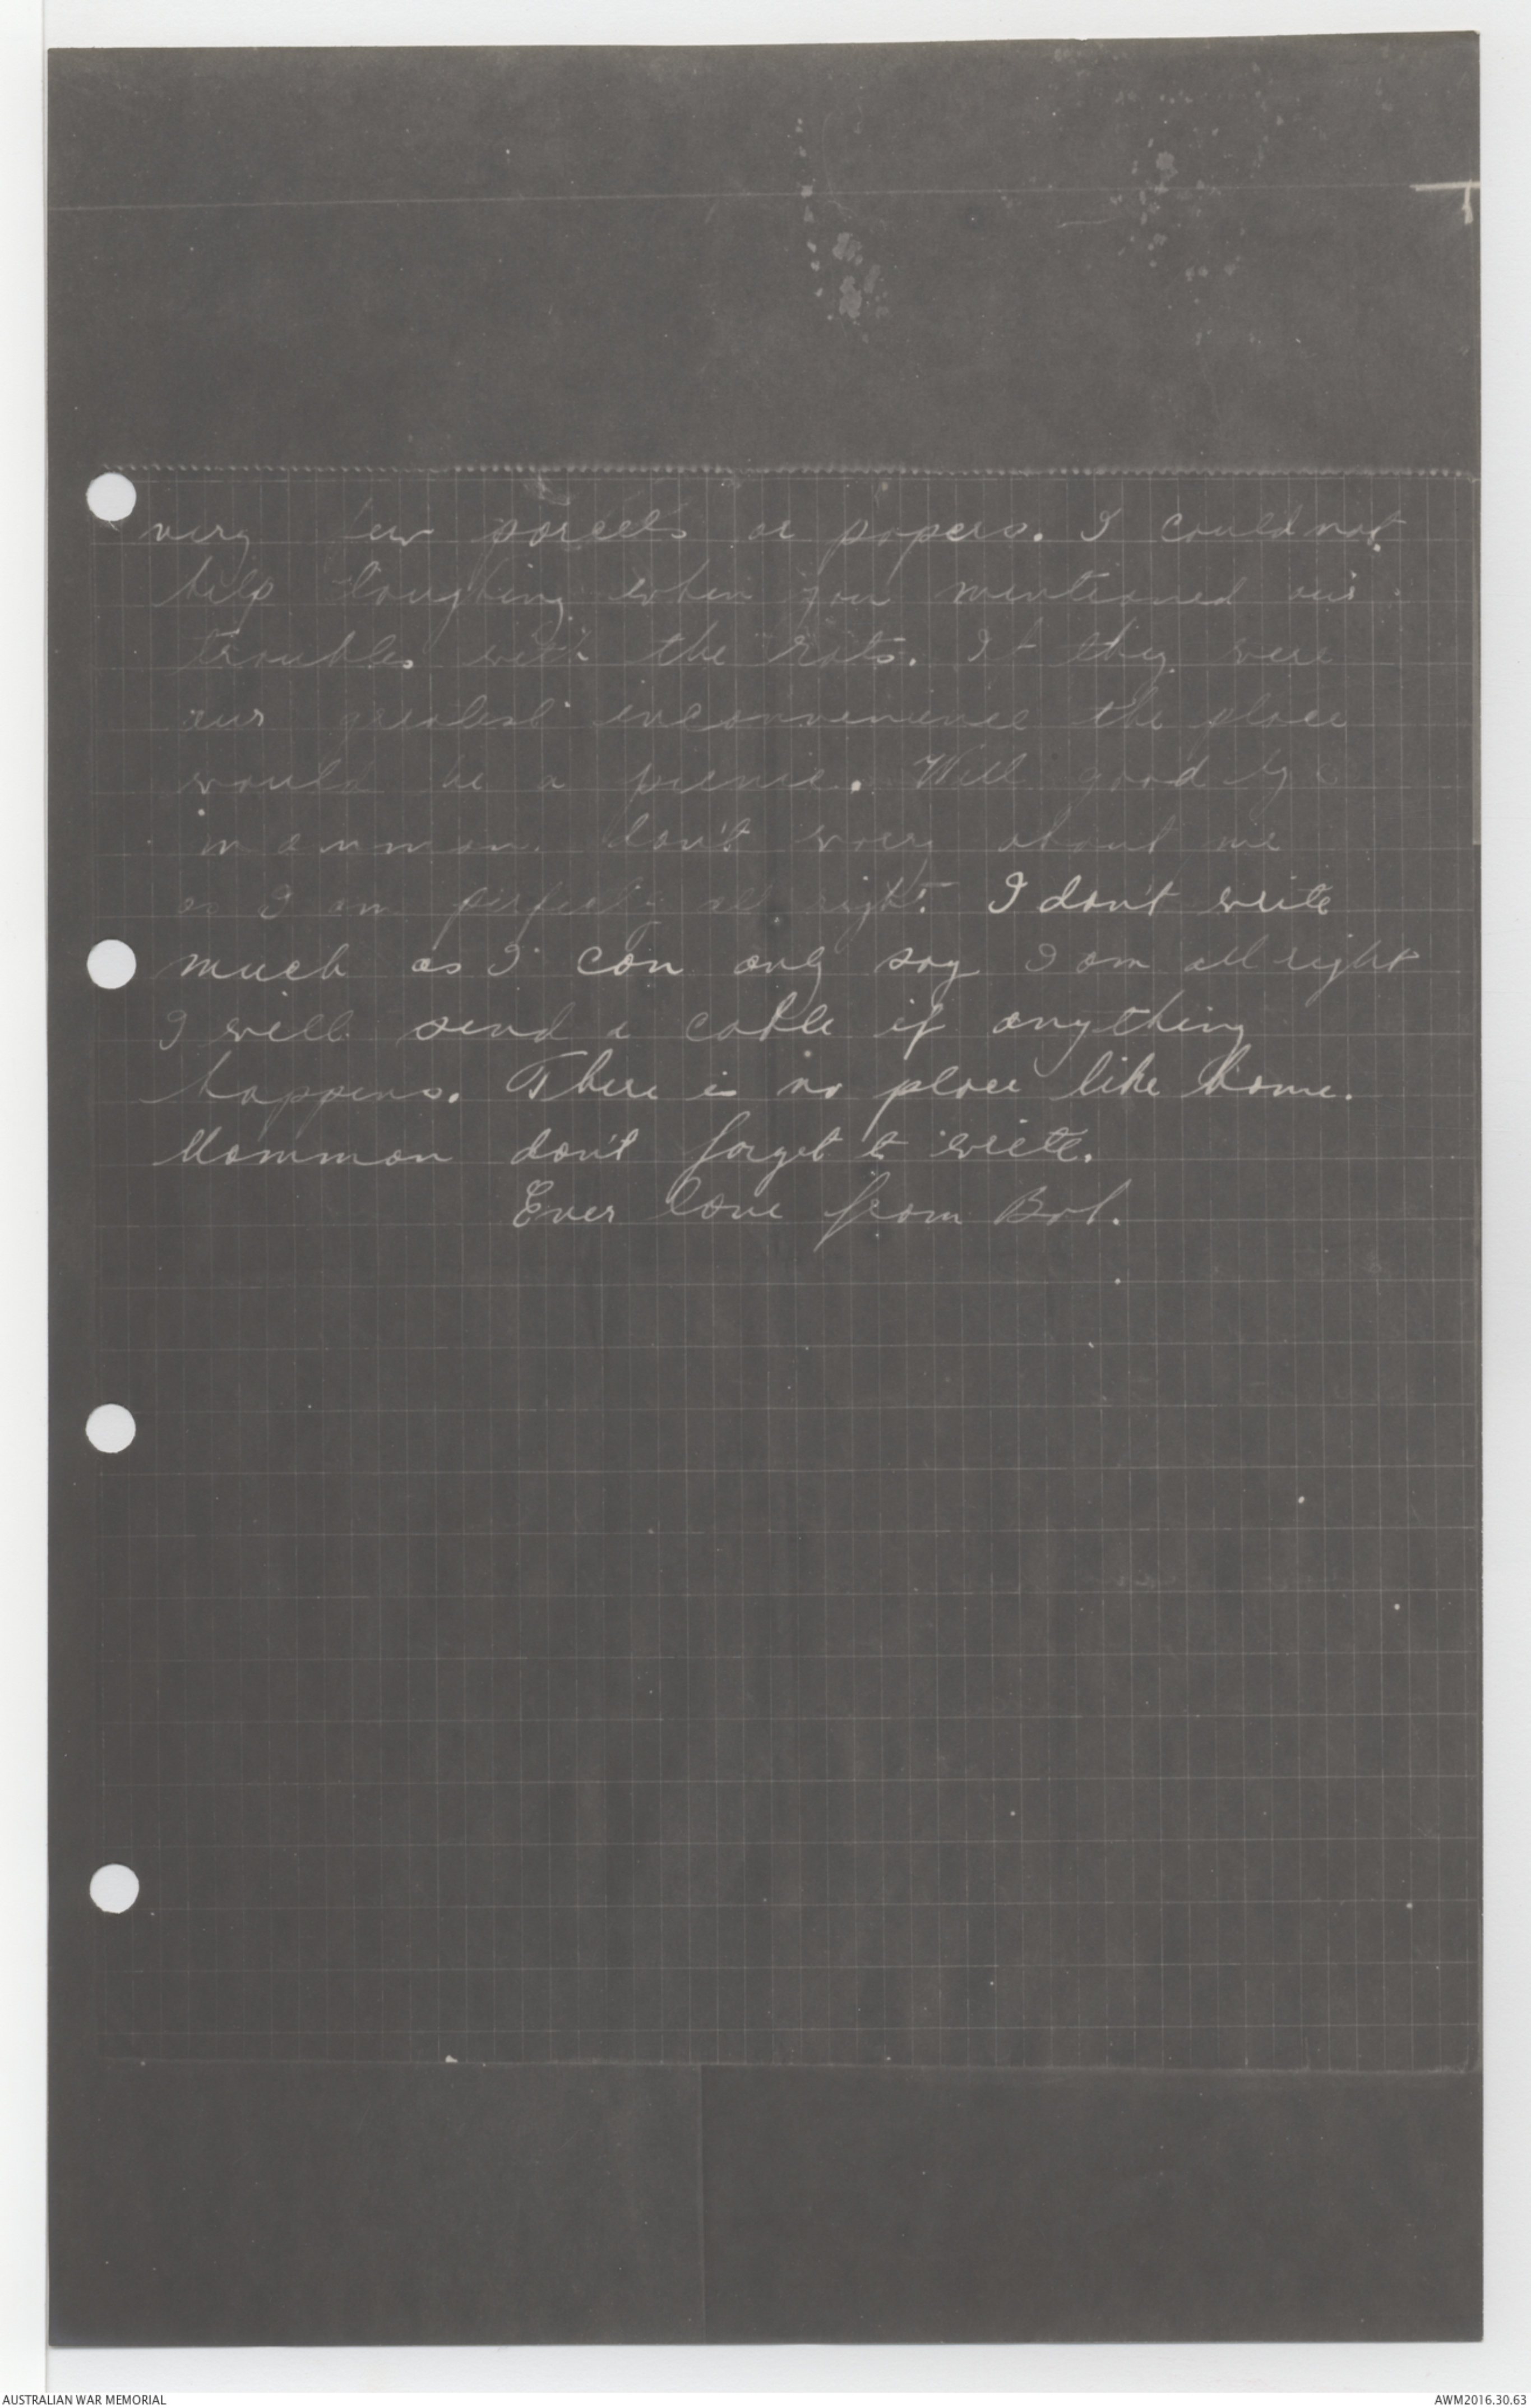 very few parcels or papers. I could not
help laughing when you mentioned our
troubles with the rats. If they were
our greatest inconvenience the place
would be a picnic. Well good bye
mamman. don't worry about me
as I am perfectly all right. I don't write
much as I can only say I am all right
I will send a cable if anything
happens. There is no place like home.
Mamman don't forget to write.
Ever love from Bob.
AUSTRALIAN WAR MEMORIAL
AWM2016.30.63